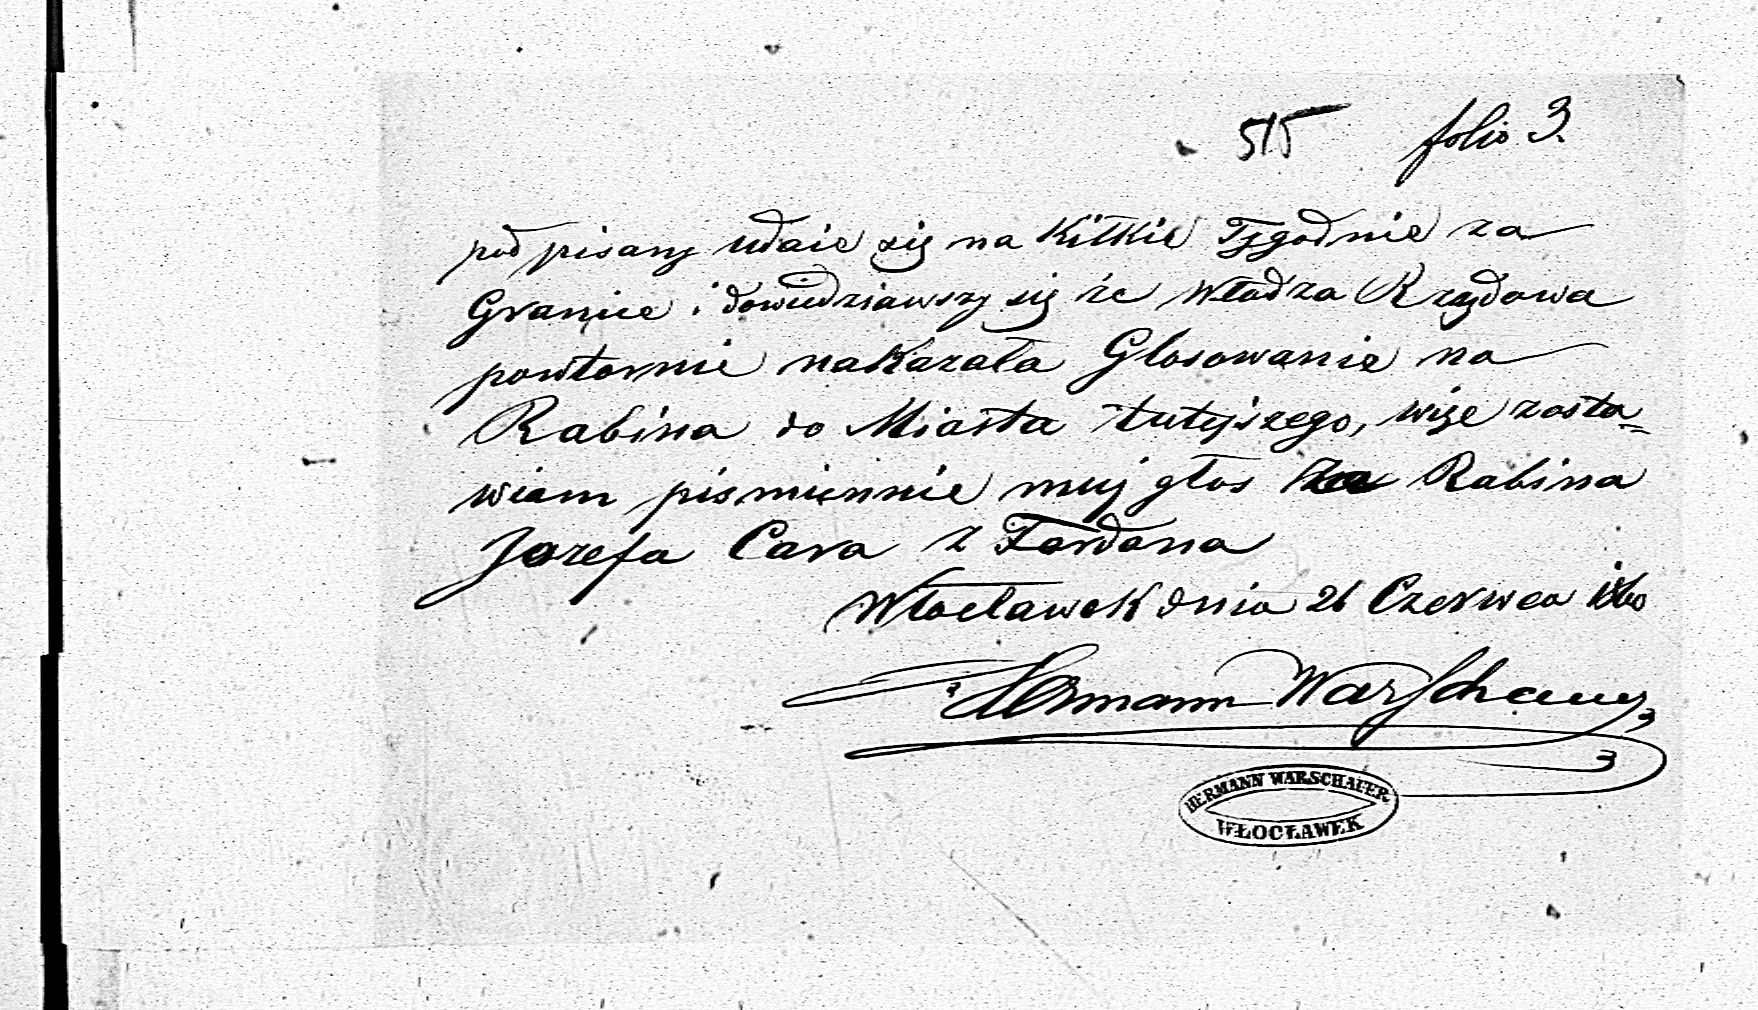 515 folio 3.
podpisany udaie się na Kilkie Tygodnie za
Granice i dowiedziawszy się że Władza Rządowa
powtornie nakazała Glosowanie na
Rabina do Miasta tutejszego, więe zosta=
wiam pismiennie muj głos za Rabina
Jozefa Cara z Fordona
Włocławek dnia 26 Czerwca 1860
Hermann Warschauer
HERMANN WARSCHAUER
WŁOCŁAWEK